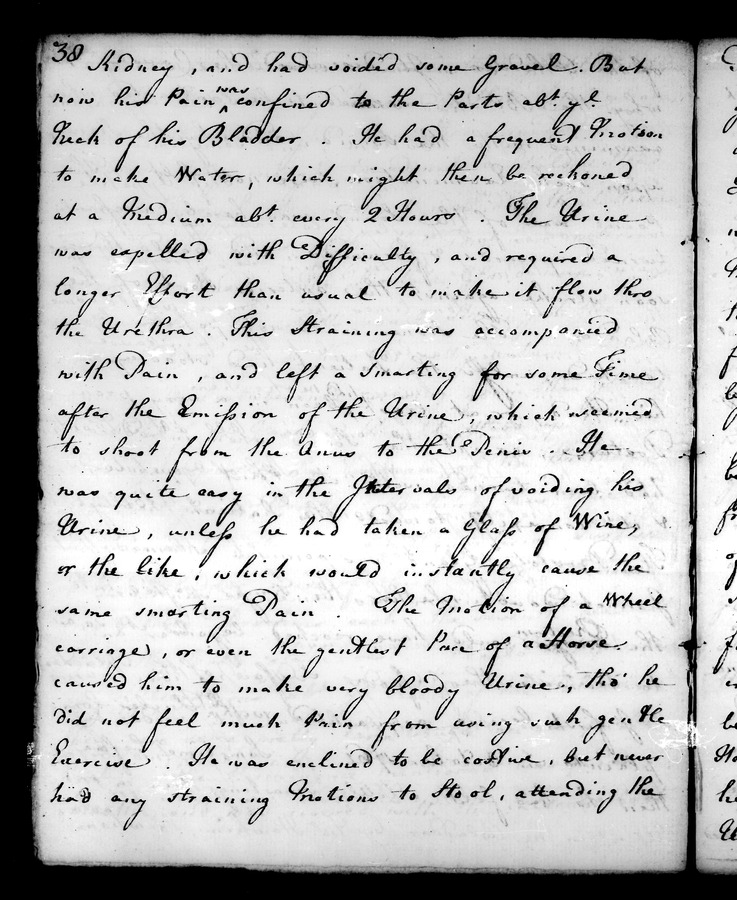 38
Kidney, and had voided some Gravel. But
now his Pain was confined to the Parts abt. ye.
Neck of his Bladder. He had a frequent Motion
to make Water, which might then be reckoned
at a Medium abt. every 2 Hours. The Urine
was expelled with Difficulty, and required a
longer Effort than usual to make it flow thro
the Urethra. This Straining was accompanied
with Pain, and left a Smarting for some Time
after the Emission of the Urine, which seemed
to shoot from the Anus to the Penis. He
was quite easy in the Intervals of voiding his
Urine, unless he had taken a Glass of Wine,
or the like, which would instantly cause the
same smarting Pain. The Motion of a Wheel
carriage, or even the gentlest Pace of a Horse
caused him to make very bloody Urine, tho' he
did not feel much Pain from using such gentle
Exercise. He was enclined to be costive, but never
had any straining Motions to Stool, attending the